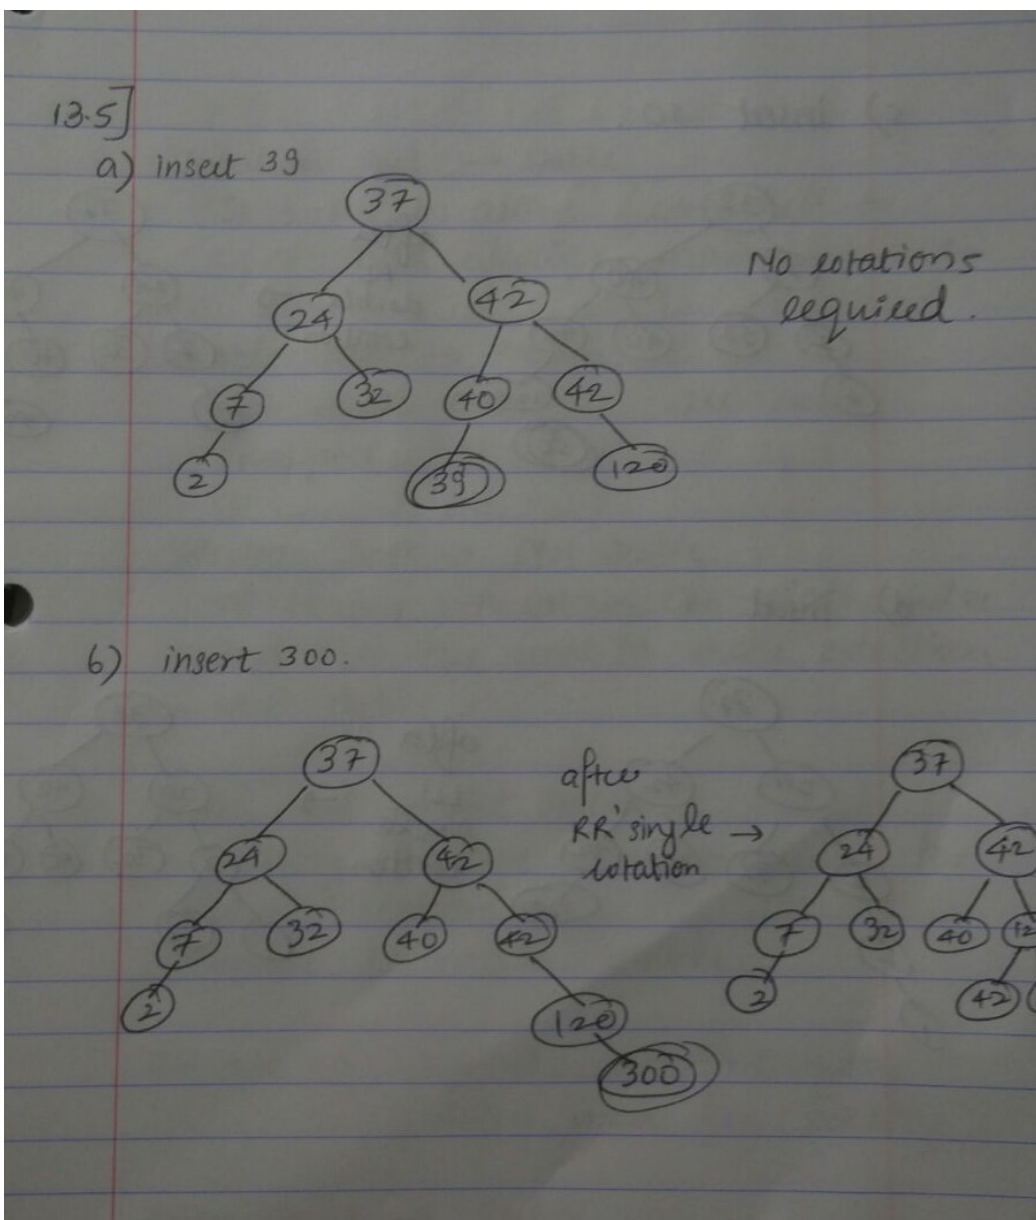 13.5]
a) insert 39
37
24 42
7 32 40 42
2 39 120
No rotations
required.
b) insert 300.
37
24 42
7 32 40 42
2 120
300
after
RR' single →
rotation
37
24 42
7 32 40 12
2 42